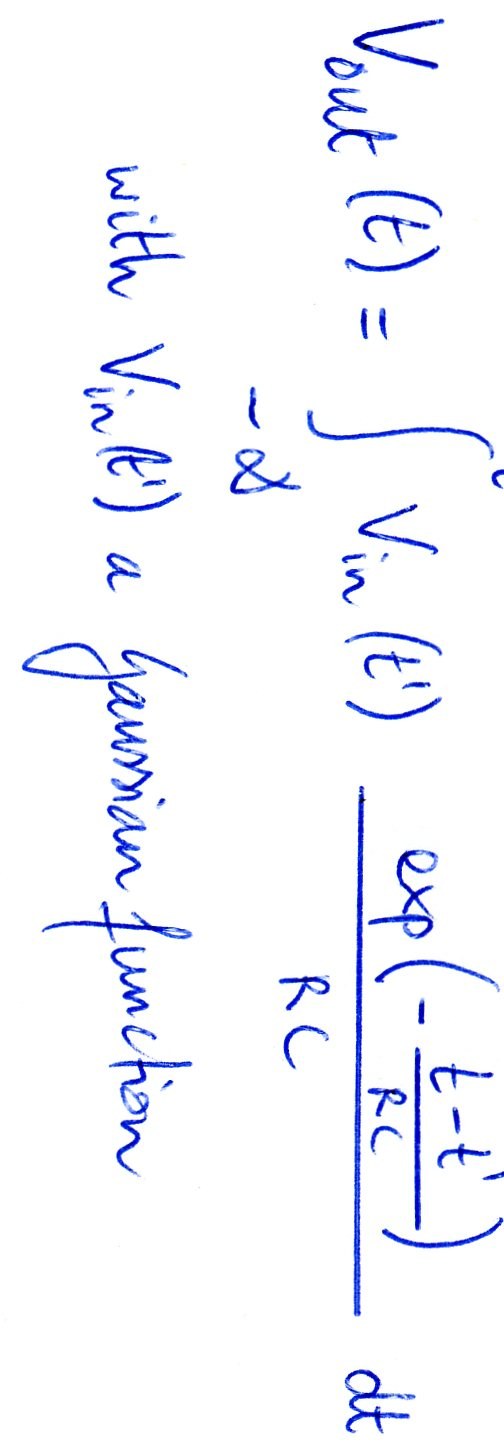 Vout (t) = ∫_{-∞}^{t} Vin (t') exp(- (t-t')/RC) / RC dt
with Vin(t') a gaussian function